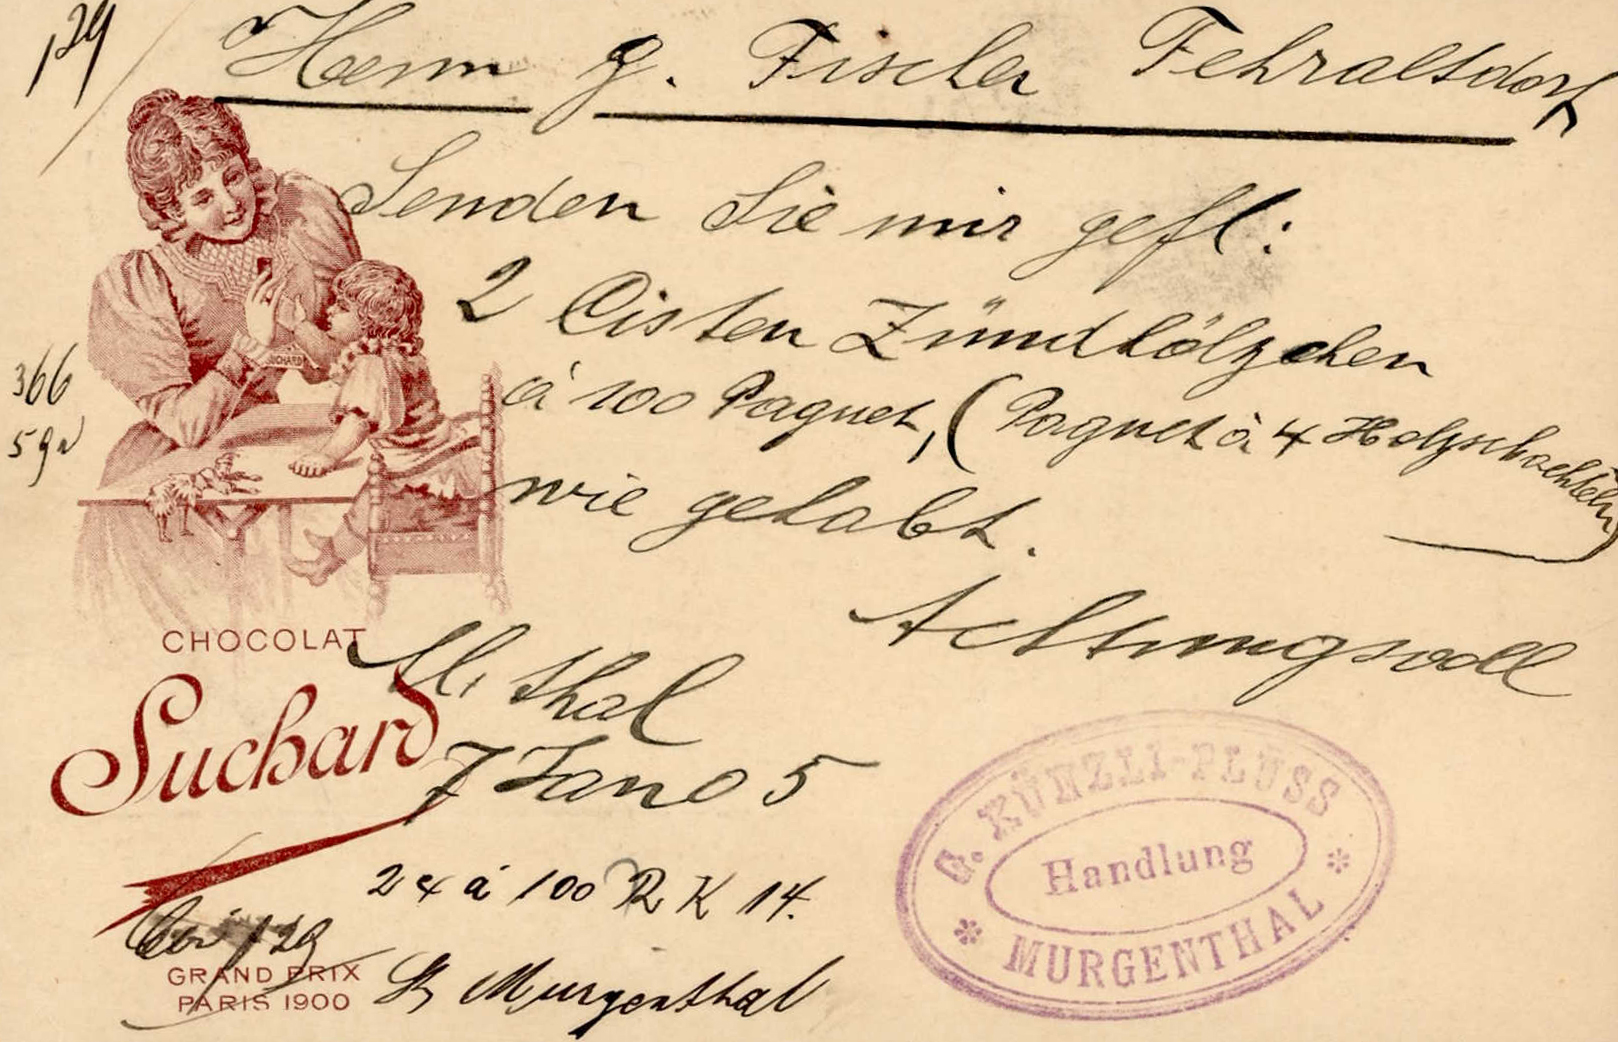 129
Herrn G. Fischer Fehraltdorf
Senden Sie mir gefl:
2 Cisten Zündhölzchen
à 100 Paquet, (Paquet à 4 Holzschachteln)
wie gehabt.
Achtungsvoll
366
SUCHARD
CHOCOLAT
Suchard
M. thal
7 Jan 05
G. KÜNZLI-PLÜSS
Handlung
MURGENTHAL
2 à 100 K 14.
129
GRAND PRIX
PARIS 1900
Murgenthal